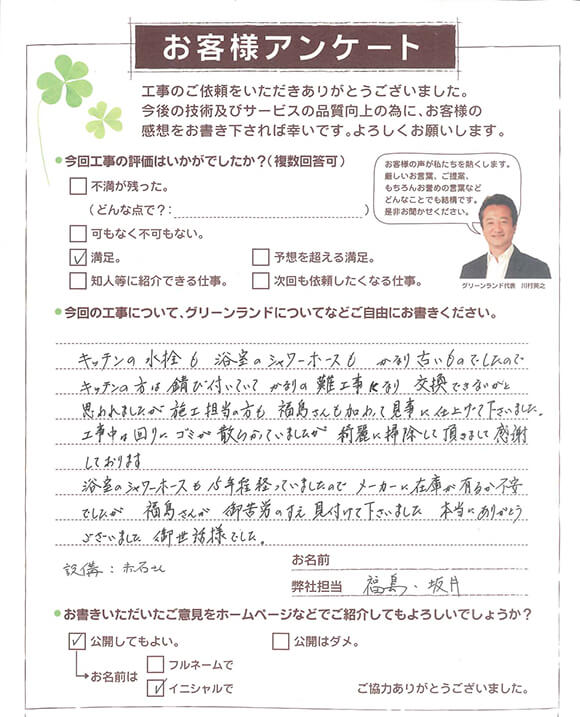 お客様アンケート
工事のご依頼をいただきありがとうございました。
今後の技術及びサービスの品質向上の為に、お客様の
感想をお書き下されば幸いです。よろしくお願いします。
●今回工事の評価はいかがでしたか?(複数回答可)
□不満が残った。
(どんな点で?:)
□可もなく不可もない。
☑満足。
□予想を超える満足。
□知人等に紹介できる仕事。
□次回も依頼したくなる仕事。
お客様の声が私たちを熱くします。
厳しいお言葉、ご提案、
もちろんお誉めの言葉など
どんなことでも結構です。
是非お聞かせください。
グリーンランド代表 川村英之
●今回の工事について、グリーンランドについてなどご自由にお書きください。
キッチンの水栓も 浴室のシャワーホースも かなり古いものでしたので
キッチンの方は錆び付いていて かなりの難工事になり 交換できないかと
思われましたが 施工担当の方も 福島さんも加わって見事に仕上げて下さいました。
工事中は回りにゴミが散らかっていましたが 綺麗に掃除して頂きまして感謝
しております
浴室のシャワーホースも15年程経っていましたので メーカーに在庫が有るか不安
でしたが 福島さんが 御苦労のすえ見付けて下さいました 本当にありがとう
ございました 御世話様でした。
設備:赤石さん
お名前
弊社担当 福島・坂井
●お書きいただいたご意見をホームページなどでご紹介してもよろしいでしょうか?
☑公開してもよい。
□公開はダメ。
お名前は
□フルネームで
☑イニシャルで
ご協力ありがとうございました。